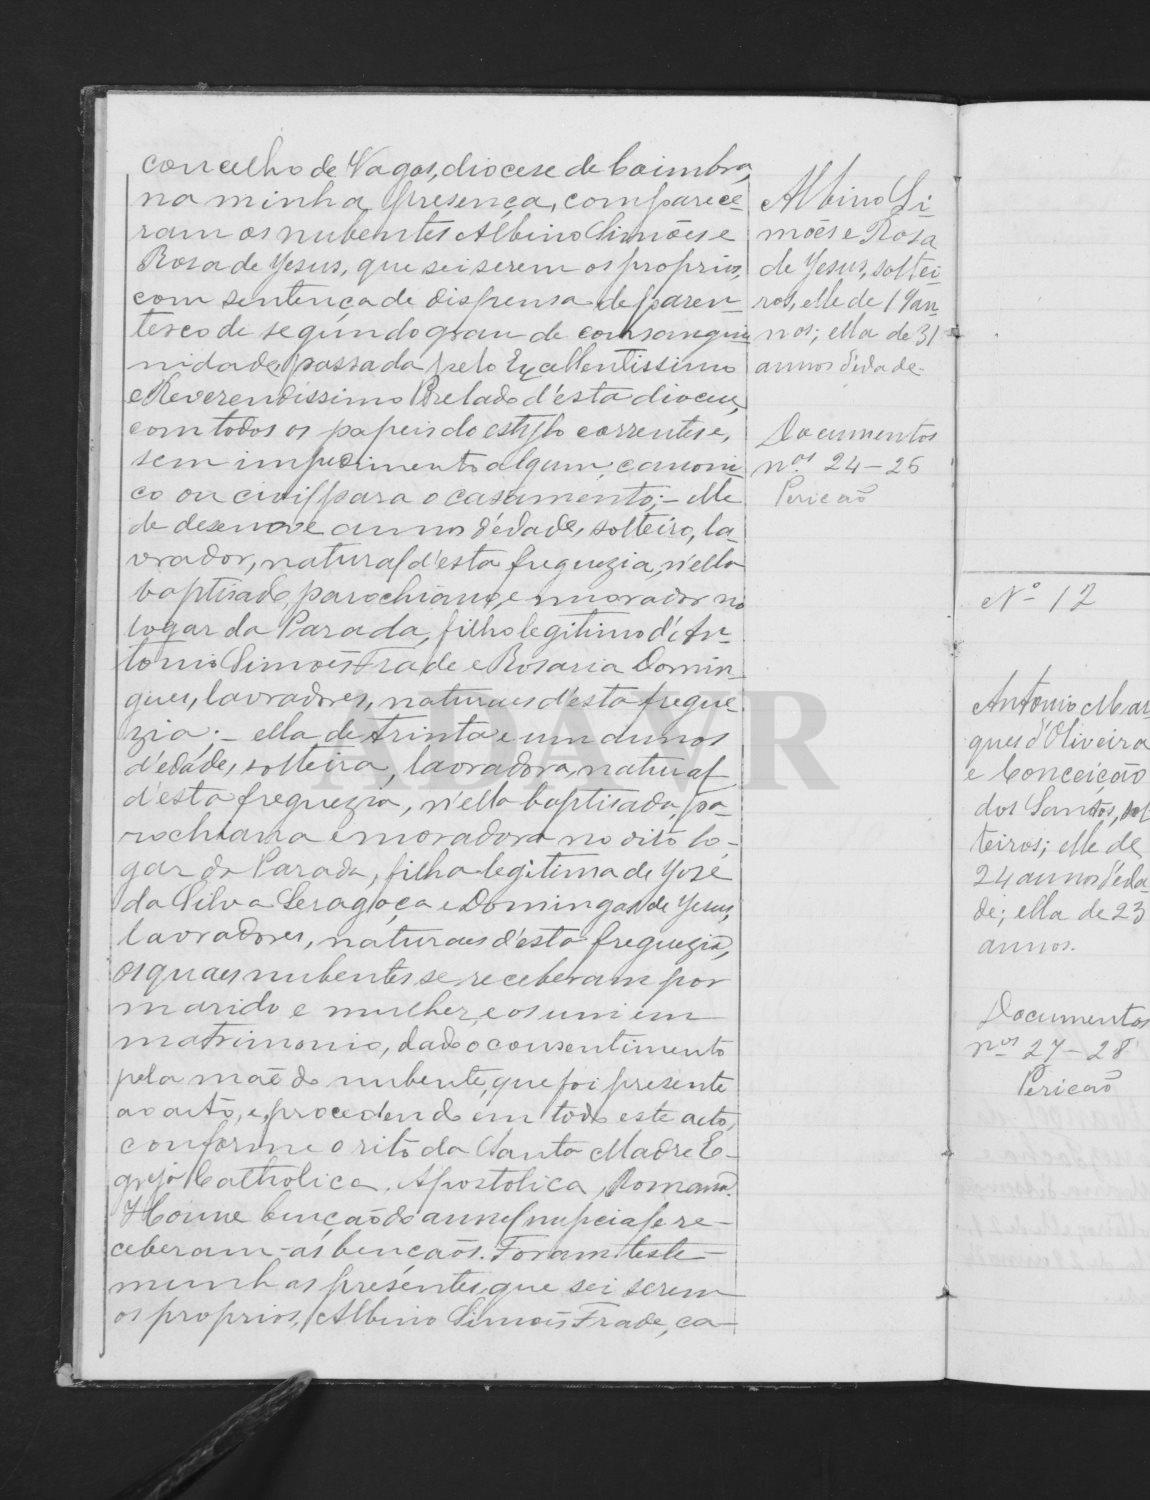 concelho de Vagos, diocese de Coimbra,
na minha presença, comparece-
ram os nubentes Albino Simões e
Rosa de Jesus, que sei serem os proprios,
com sentença de dispensa de paren-
tesco de segundo grau de consangui-
nidade, passada pelo Excellentissimo
e Reverendissimo Prelado d'esta diocese,
com todos os papeis do estylo correntes e,
sem impedimento algum, canoni-
co ou civil para o casamento; - elle
de desenove annos d'edade, solteiro, la-
vrador, natural d'esta freguezia, n'ella
baptisado, parochiano, e morador no
logar da Parada, filho legitimo d'An-
tonio Simões Frade e Rosaria Domin-
gues, lavradores, naturaes d'esta fregue-
zia; - ella de trinta e um annos
d'edade, solteira, lavradora, natural
d'esta freguezia, n'ella baptisada, pa-
rochiana e moradora no dito lo-
gar da Parada, filha legitima de José
da Silva Seragoça e Domingas de Jesus,
lavradores, naturaes d'esta freguezia,
os quaes nubentes se receberam por
marido e mulher, e os uni em
matrimonio, dado o consentimento
pela mãe do nubente, que foi presente
ao acto, e, procedendo em todo este acto,
conforme o rito da Santa Madre E-
greja Catholica, Apostolica, Romana.
Houve benção do annel nupcial e re-
ceberam as bençãos. Foram teste-
munhas presentes, que sei serem
os proprios, Albino Simões Frade, ca-
Albino Si-
mões e Rosa
de Jesus, soltei-
ros, elle de 19 an-
nos; ella de 31
annos d'edade.
Documentos
nos 24-26
Pericão
Nº 12
Antonio Mar-
ques d'Oliveira
e Conceição
dos Santos, sol-
teiros; elle de
24 annos d'eda-
de; ella de 23
annos.
Documentos
nos 27-28
Pericão
ADAVR